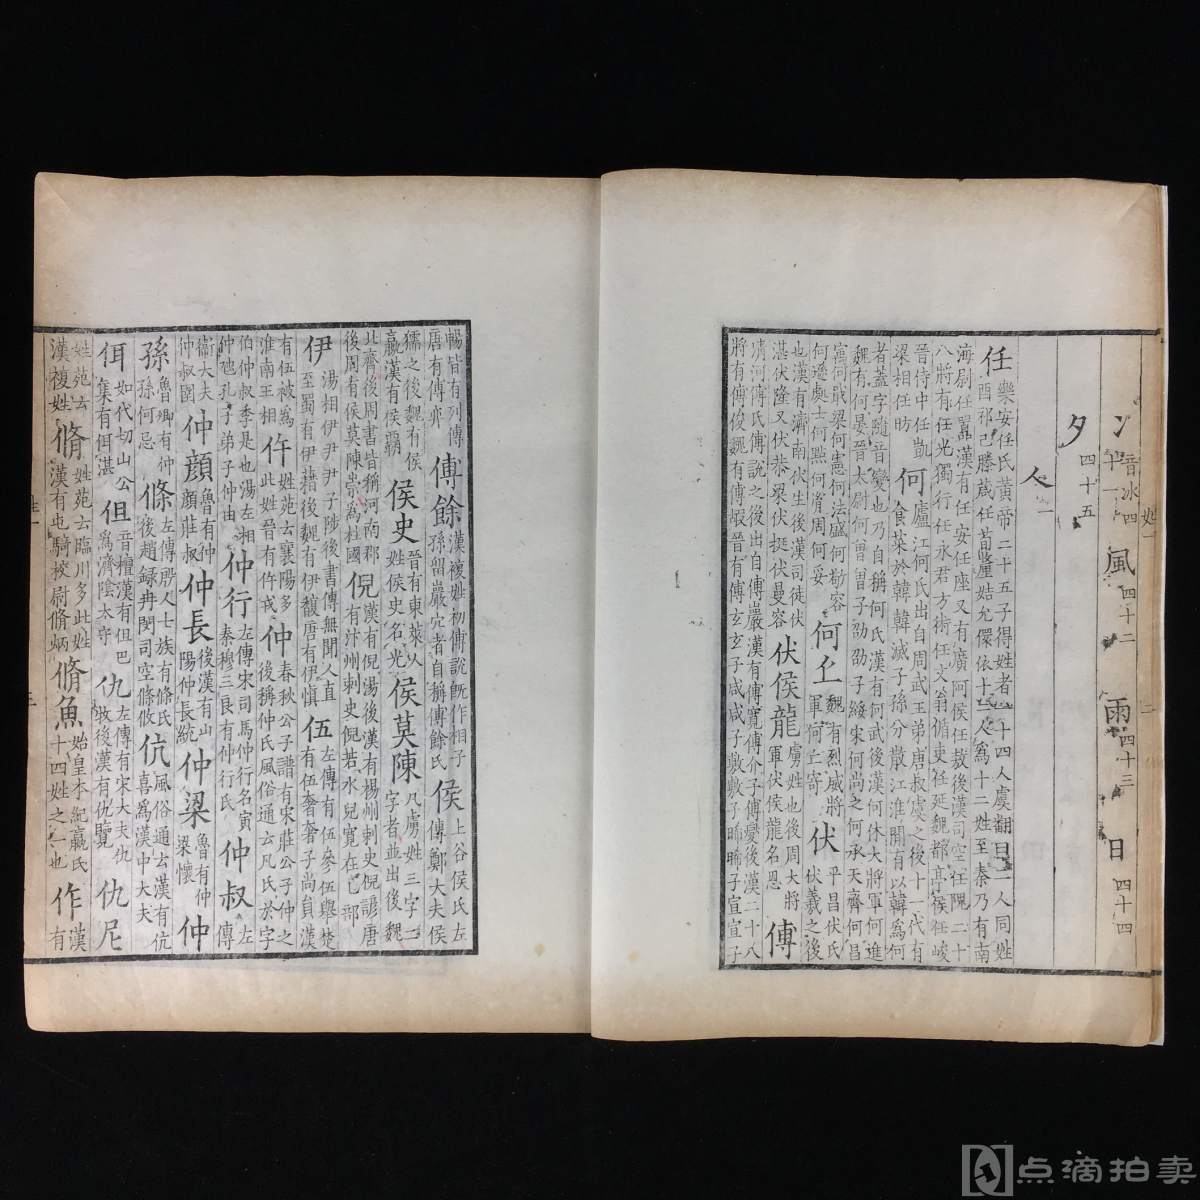 姓一 二
冫音冰四十一 風四十二 雨四十三 日四十四
夕四十五
人一
任樂安任氏黃帝二十五子得姓者十四人虞翻曰二人同姓
酉祁己滕葴任荀釐姞允儇依十二人為十二姓至秦乃有南
海尉任囂漢有任安任座又有廣阿侯任敖後漢司空任隗二十
八將有任光獨行任永君方術任文翁循吏任延魏都亭侯任峻
晉侍中任凱 何廬江何氏出自周武王弟唐叔虞之後十一代有
梁相任昉 食菜於韓韓滅子孫分散江淮閒有以韓為何
者蓋字隨音變也乃自稱何氏漢有何武後漢何休大將軍何進
魏有何晏晉太尉何曾曾子劭劭子綏宋何尚之何承天齊何昌
㝢何戢梁何憲何法盛何敬容 何丄魏有烈威將 伏平昌伏氏
何遜處士何點何胤周何妥 軍何丄寄 伏羲之後
也漢有濟南伏生後漢司徒伏 伏侯龍虜姓也後周大將 傅
湛伏隆又伏恭梁伏挺伏曼容 軍伏侯龍名恩
清河傅氏傅說之後出自傅巖漢有傅寬傅介子傅燮後漢二十八
將有傅俊魏有傅嘏晉有傅玄玄子咸咸子敷敷子晞晞子宣宣子
暢皆有列傳 傅餘漢複姓初傅說旣作相子 侯上谷侯氏左
唐有傅弈 孫留巖穴者自稱傅餘氏 傳鄭大夫侯
獳之後魏有侯 侯史晉有東萊人 侯莫陳凡虜姓三字二
嬴漢有侯霸 姓侯史名光 字者並出後魏
北齊後周書皆稱河南郡 倪漢有倪湯後漢有楊州刺史倪諺唐
後周有侯莫陳崇為柱國 有汴州刺史倪若水兒寬在乙部
伊湯相伊尹尹子陟後書傳無聞人直 伍左傳有伍參伍舉楚
至蜀有伊籍後魏有伊馥唐有伊慎 有伍奢奢子尚員漢
有伍被為 仵姓苑云襄陽多 仲春秋公子譜有宋莊公子仲之
淮南王相 此姓晉有仵戎 後稱仲氏風俗通云凡氏於字
伯仲叔季是也湯左相 仲行左傳宋司馬仲行名寅 仲叔左
仲虺孔子弟子仲由 秦穆三良有仲行氏 傳
衛大夫 仲顏魯有仲 仲長後漢有山 仲梁魯有仲 仲
仲叔圉 顏莊叔 陽仲長統 梁懷
孫魯卿有仲 條左傳殷人七族有條氏 伉風俗通云漢有伉
孫何忌 後趙錄冉閔司空條攸 喜為漢中大夫
佴如代切山公 但音檀漢有但巴 仇左傳有宋大夫仇 仇尼
集有佴湛 為濟陰太守 牧後漢有仇覽
姓苑云 脩姓苑云臨川多此姓 脩魚始皇本紀嬴氏 作漢
漢複姓 漢有屯騎校尉脩炳 十四姓之一也 有
姓一 三
点滴拍卖